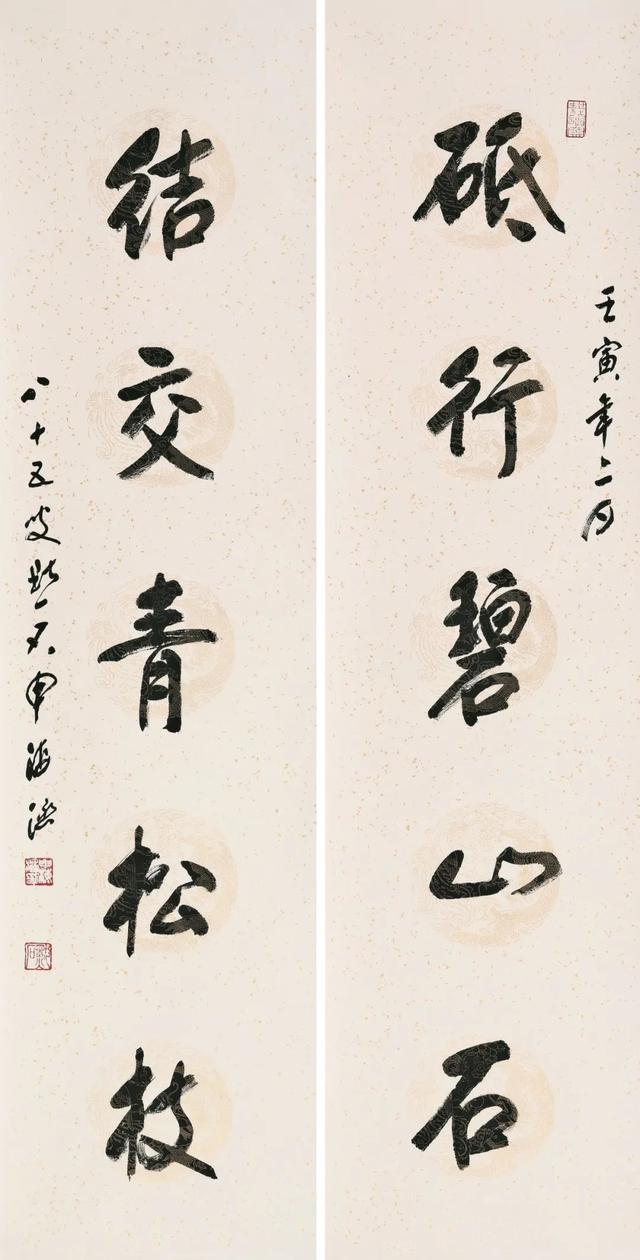 砥行碧山石
壬寅年二月
结交青松枝
八十五叟点石申海濤